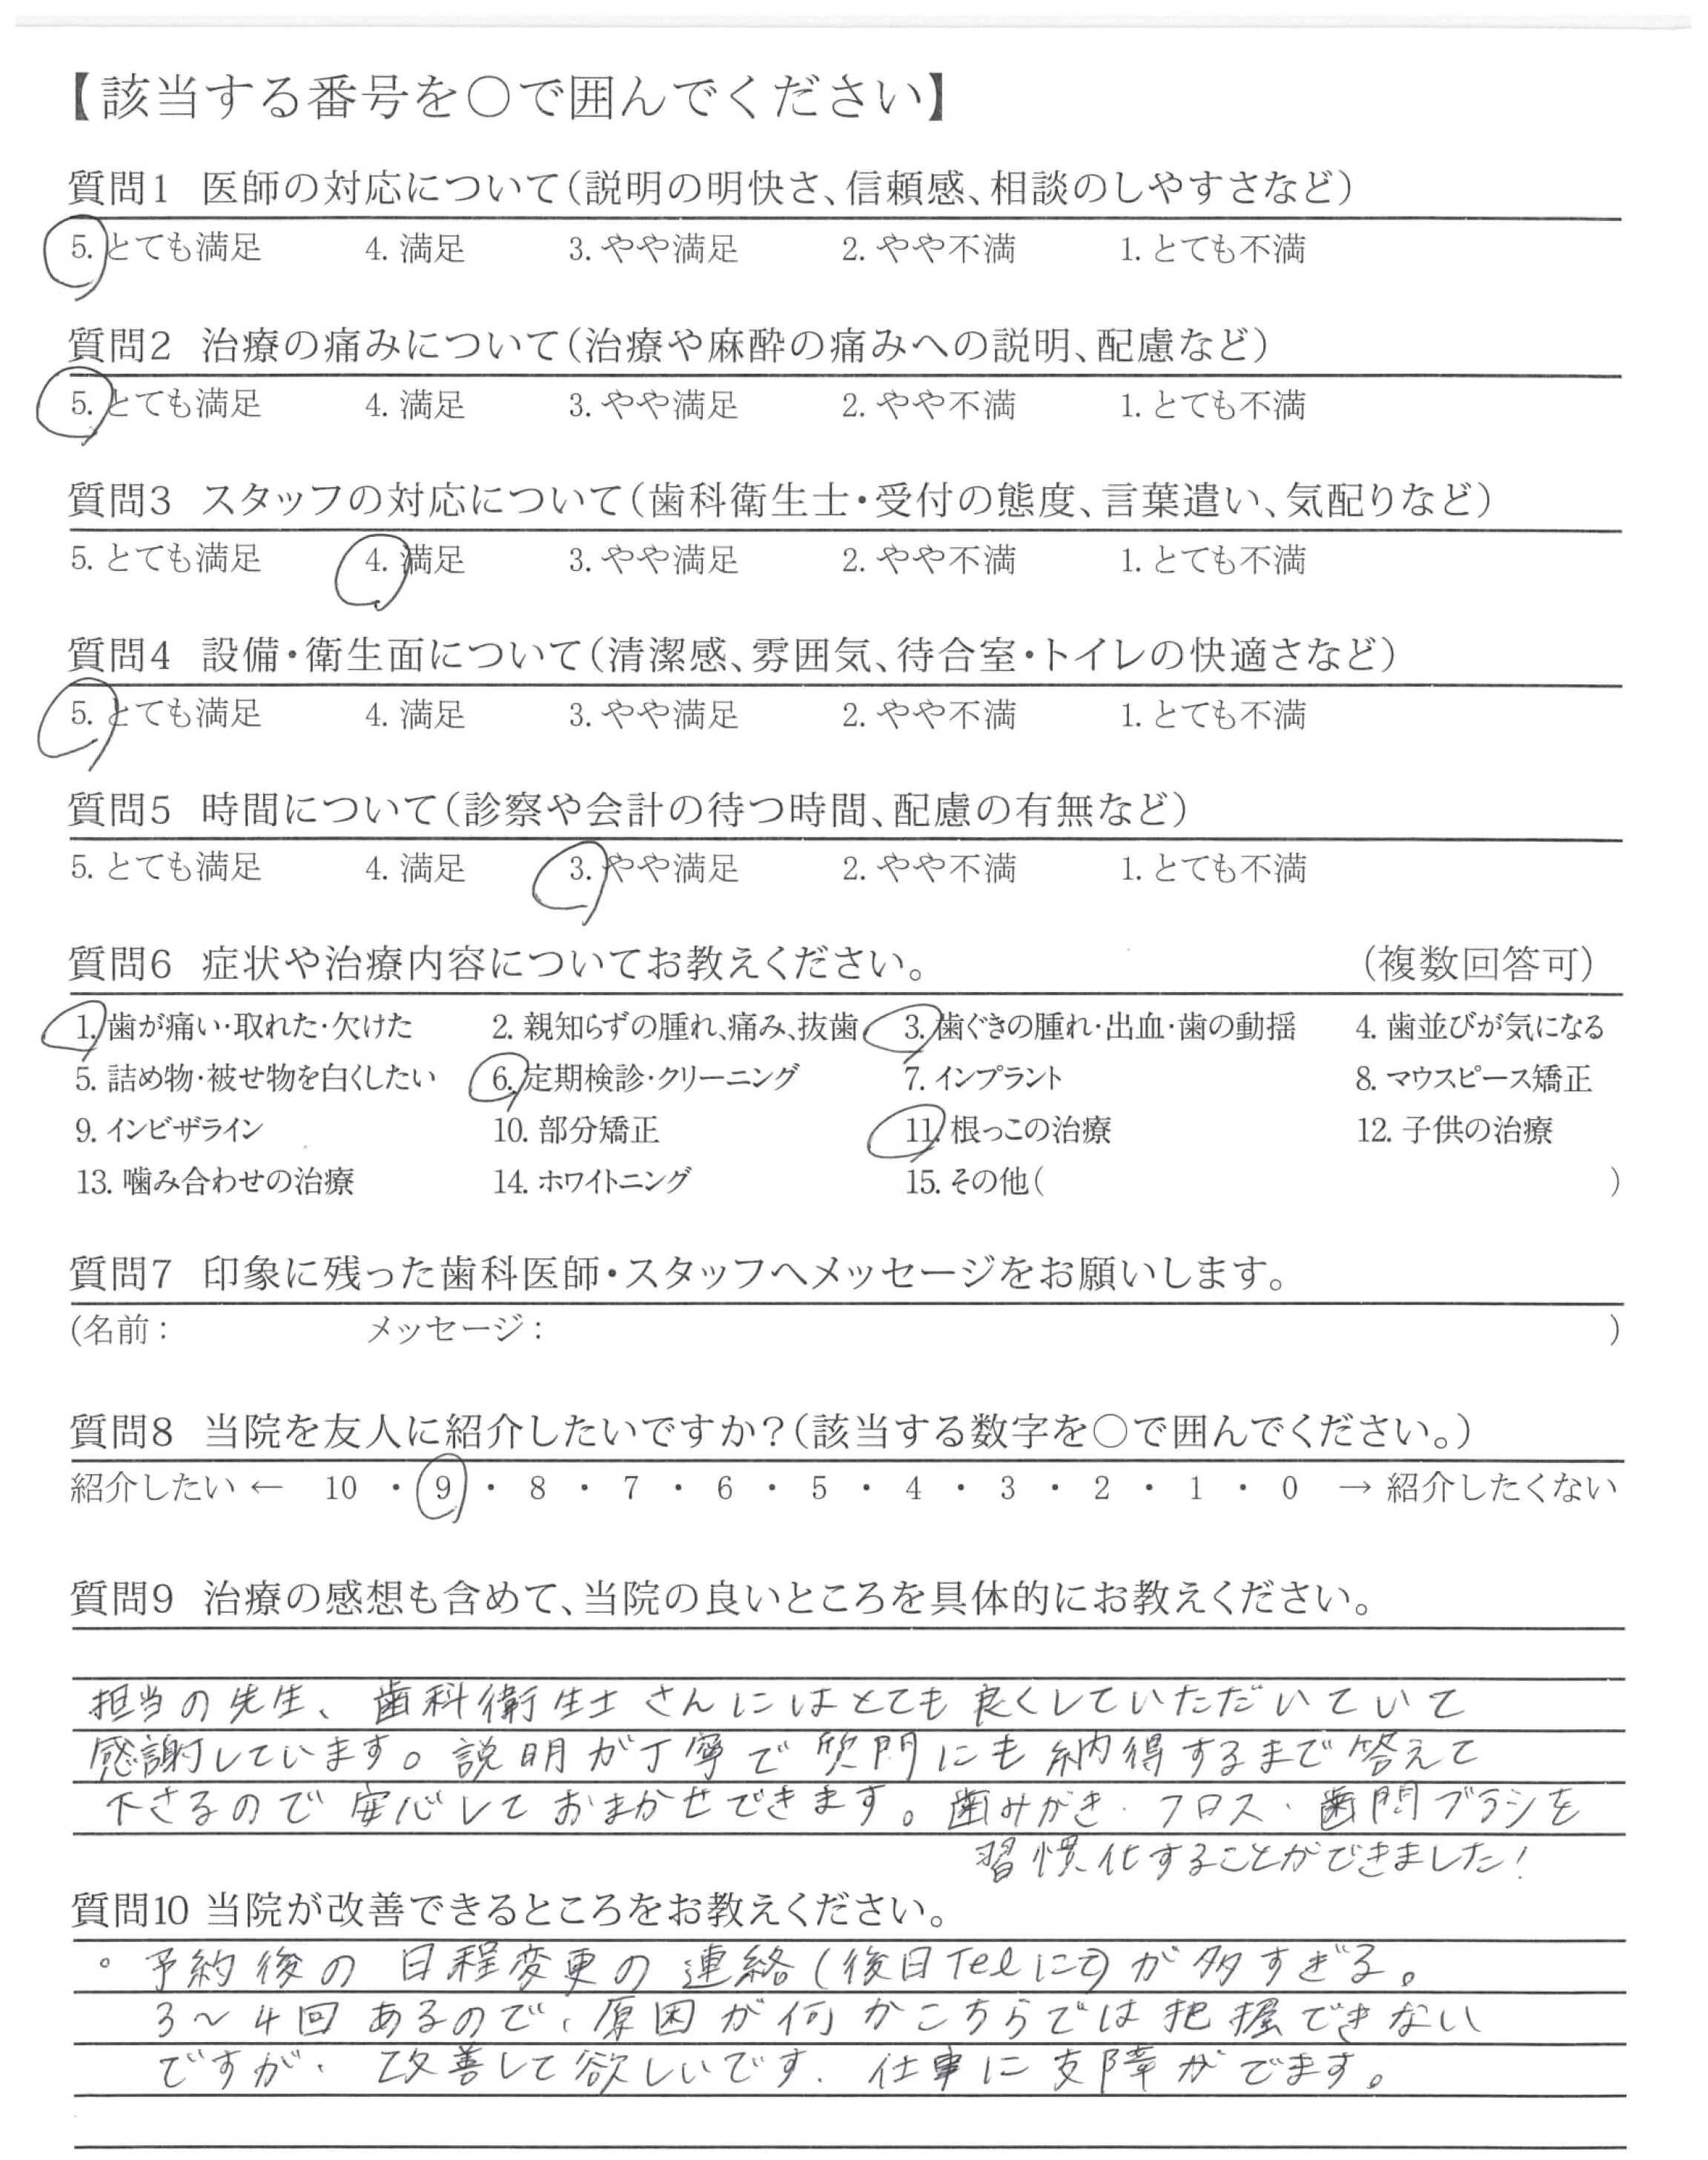 【該当する番号を○で囲んでください】
質問1 医師の対応について(説明の明快さ、信頼感、相談のしやすさなど)
5. とても満足 4. 満足 3. やや満足 2. やや不満 1. とても不満
質問2 治療の痛みについて(治療や麻酔の痛みへの説明、配慮など)
5. とても満足 4. 満足 3. やや満足 2. やや不満 1. とても不満
質問3 スタッフの対応について(歯科衛生士・受付の態度、言葉遣い、気配りなど)
5. とても満足 4. 満足 3. やや満足 2. やや不満 1. とても不満
質問4 設備・衛生面について(清潔感、雰囲気、待合室・トイレの快適さなど)
5. とても満足 4. 満足 3. やや満足 2. やや不満 1. とても不満
質問5 時間について(診察や会計の待つ時間、配慮の有無など)
5. とても満足 4. 満足 3. やや満足 2. やや不満 1. とても不満
質問6 症状や治療内容についてお教えください。 (複数回答可)
1. 歯が痛い・取れた・欠けた 2. 親知らずの腫れ、痛み、抜歯 3. 歯ぐきの腫れ・出血・歯の動揺 4. 歯並びが気になる
5. 詰め物・被せ物を白くしたい 6. 定期検診・クリーニング 7. インプラント 8. マウスピース矯正
9. インビザライン 10. 部分矯正 11. 根っこの治療 12. 子供の治療
13. 噛み合わせの治療 14. ホワイトニング 15. その他( )
質問7 印象に残った歯科医師・スタッフへメッセージをお願いします。
(名前： メッセージ： )
質問8 当院を友人に紹介したいですか？(該当する数字を○で囲んでください。)
紹介したい ← 10 ・ 9 ・ 8 ・ 7 ・ 6 ・ 5 ・ 4 ・ 3 ・ 2 ・ 1 ・ 0 → 紹介したくない
質問9 治療の感想も含めて、当院の良いところを具体的にお教えください。
担当の先生、歯科衛生士さんにはとても良くしていただいていて
感謝しています。説明が丁寧で質問にも納得するまで答えて
下さるので安心しておまかせできます。歯みがき・フロス・歯間ブラシを
習慣化することができました！
質問10 当院が改善できるところをお教えください。
。予約後の日程変更の連絡(後日Telにて)が多すぎる。
3〜4回あるので、原因が何かこちらでは把握できない
ですが、改善して欲しいです。仕事に支障がでます。